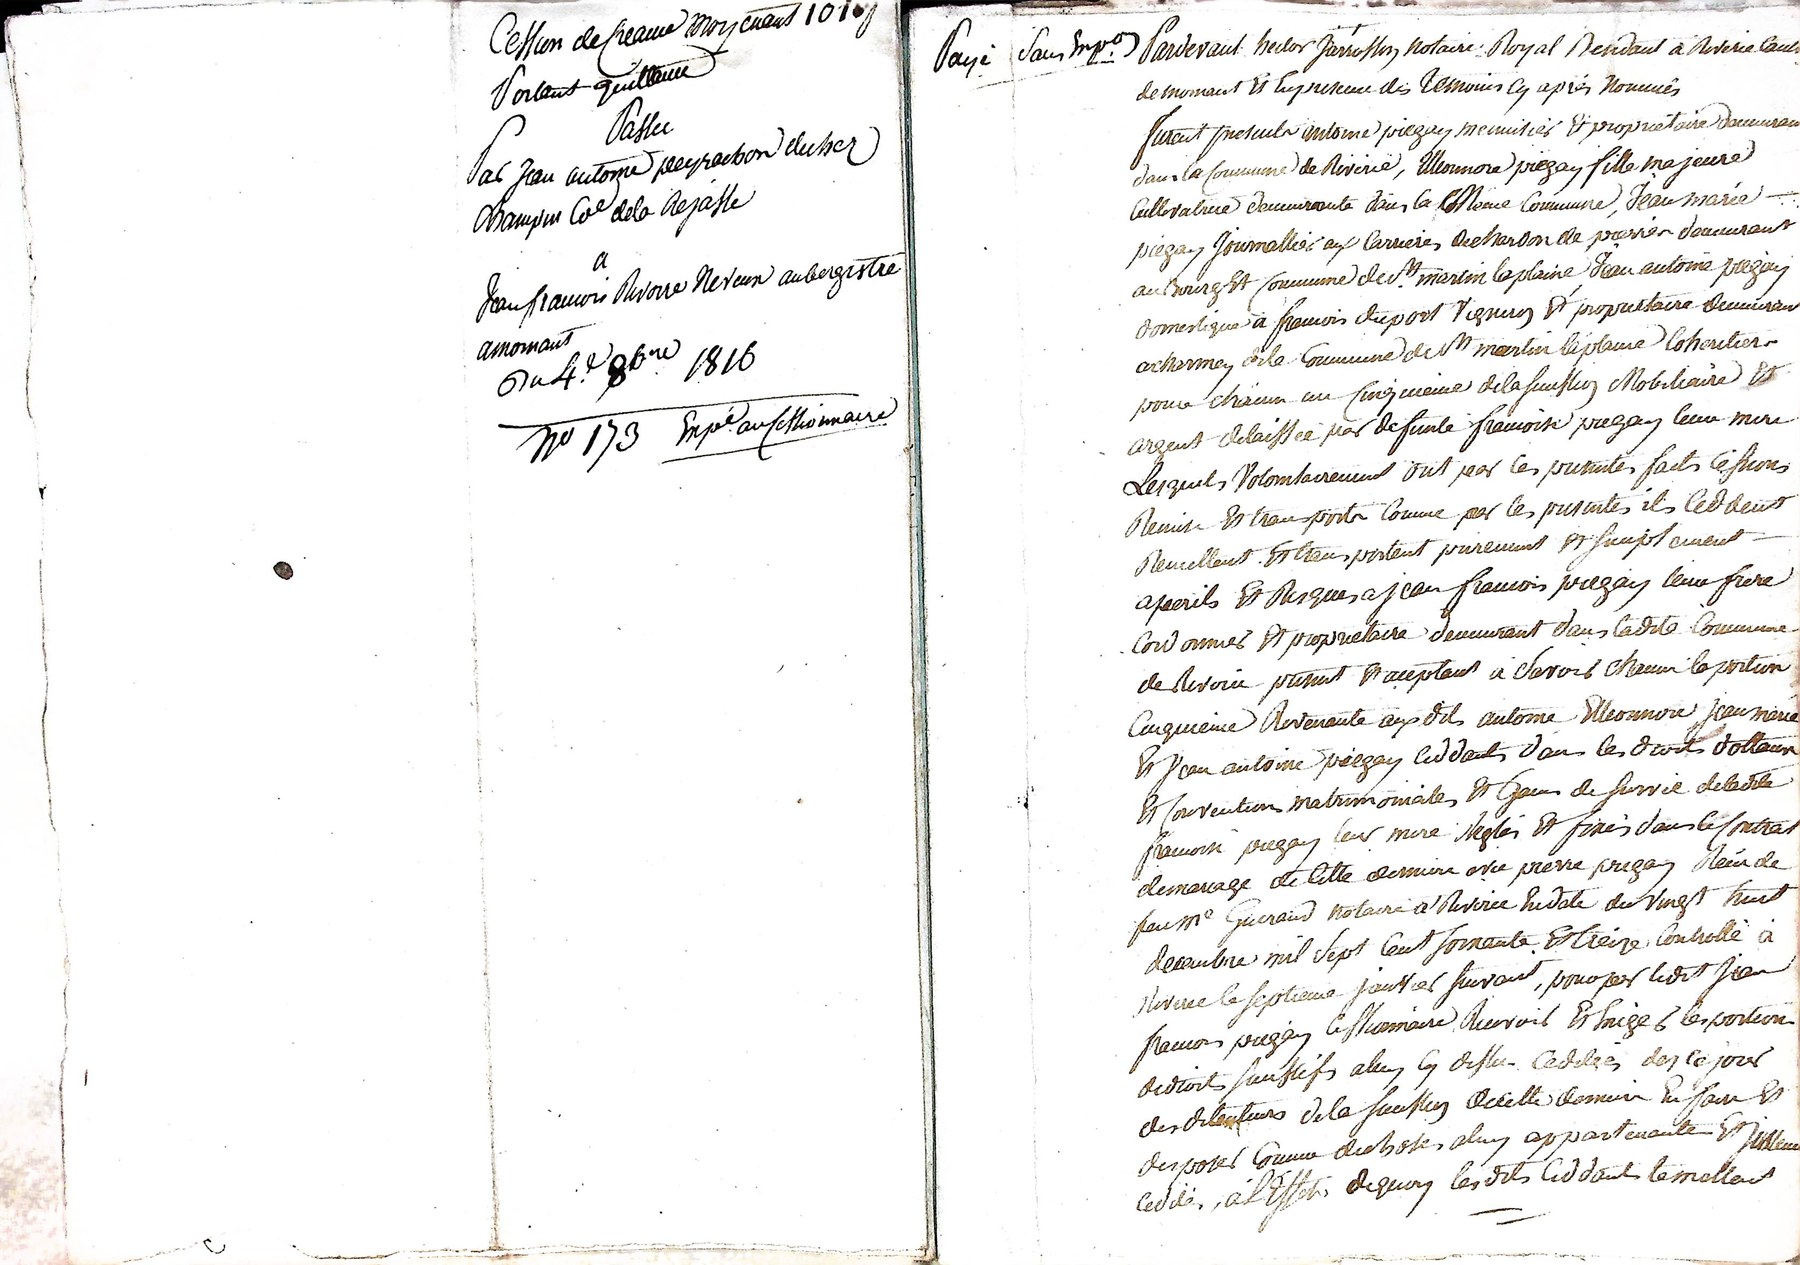 Cession de Creance moyenant 101
Portant quittance
Passee
Par Jean antoine peyrachon du chez
Champin Cne de la Rejasse
a
Jean francois Rivoire Neveux aubergiste
amornant
Du 4.e 8bre 1816
No 173 Expé au Cessionnaire
Payé Sans Exp.on
Pardevant hector Jarrosson Notaire Royal Residant a Riverie Canton
de mornant Et En presence des Temoins Cy après Nommés
furent presents antoine piegay menuisier Et proprietaire demeurant
dans la Commune de Riverie, Elleonnore piegay fille majeure
Cultivatrice demeurante dans la Même Commune, Jean marie
piegay Journallier aux Carrieres de charbon de pierre demeurant
au Bourg Et Commune de St martin laplaine, Jean antoine piegay
domestique a francois duport Vigneron Et proprietaire demeurant
a charmey de la Commune de St martin laplaine Coheritiers
pour chacun un Cinquieme de la succession Mobiliaire Et
argent delaissée par defunte francoise piegay leur mere
Lesquels Volontairement ont par les presentes faits Cessions
Remise Et transports Comme par les presentes ils Ceddent
Remettent Et transportent purement Et simplement
a perils Et Risques a Jean francois piegay leur frere
Cordonnier Et proprietaire demeurant dans ladite Commune
de Riverie present Et acceptant a Savoir chacun la portion
Cinquieme Revenante aux dits antoine Elleonnore, Jean marie
Et Jean antoine piegay Ceddants dans les droits dottaux
Et Conventions matrimoniales Et Gains de survie de ladite
francoise piegay leur mere Reglés Et fixés dans le Contrat
de mariage de Cette derniere avec pierre piegay Recu de
feu Me Gueraud Notaire a Riverie En date du Vingt huit
decembre mil Sept Cent soixante Et treize Controllé à
Riverie le septieme janvier suivant, pour par ledit Jean
francois piegay Cessionnaire Recevoir Et Exiger les portions
de droits successifs a luy Cy dessus Ceddées des ce jour
des detenteurs de la succession de Cette derniere En faire Et
disposer Comme de choses a luy appartenante Et
Ceddés, à l'Effet de quoy les dits Ceddants le mettent